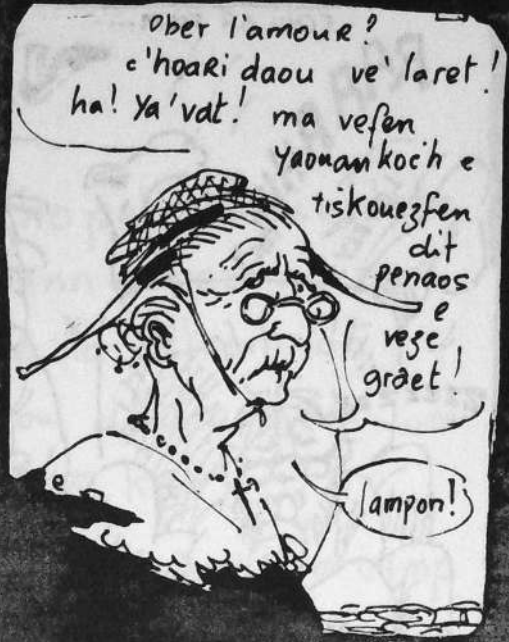 Ober l'amour?
c'hoari daou ve' laret!
ha! Ya'vat! ma vefen
yaouankoc'h e
tiskouezfen
dit
penaos
e
veze
graet!
lampon!